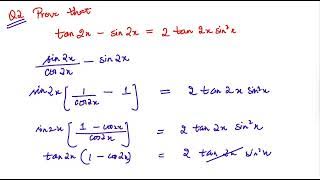 Q2 Prove that
tan2x - sin2x = 2 tan2x sin²x
sin2x/cos2x - sin2x
sin2x [1/cos2x - 1] = 2 tan2x sin²x
sin2x [(1 - cos2x)/cos2x] = 2 tan2x sin²x
tan2x (1 - cos2x) = 2 tan2x sin²x